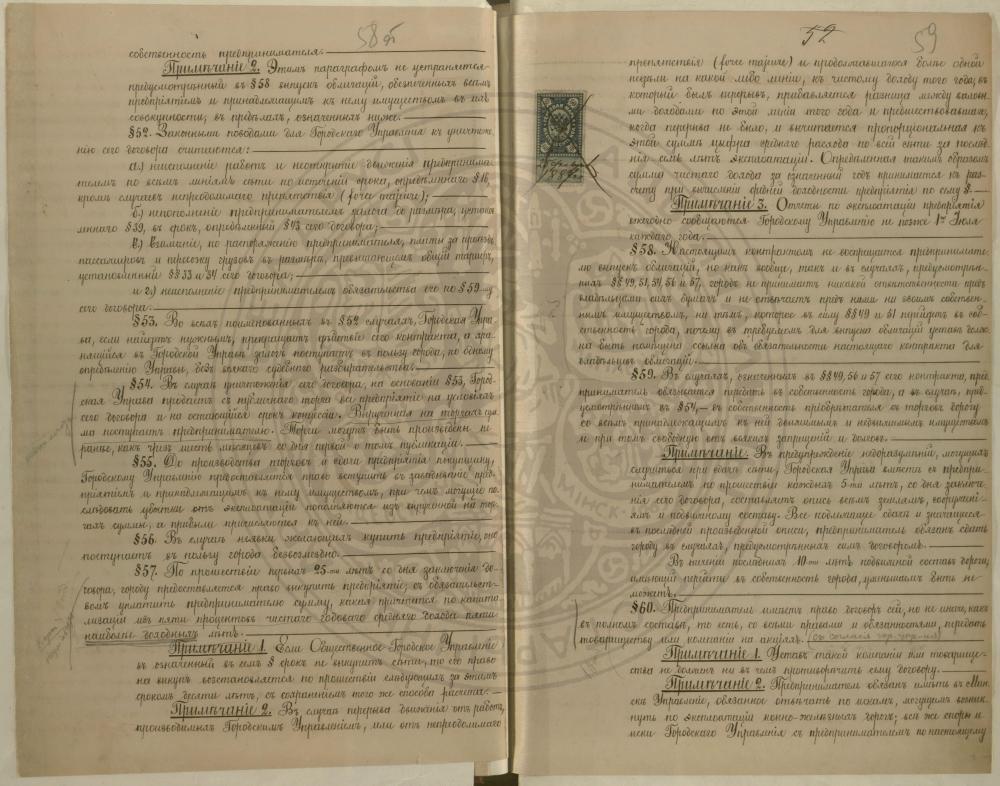 58 об
собственность предпринимателя.
Примѣчаніе 2. Этимъ параграфомъ не устраняется
предусмотрѣнный въ §58 выпускъ облигацій, обезпеченныхъ всѣмъ
предпріятіемъ и принадлежащимъ къ нему имуществомъ въ ихъ
совокупности, въ предѣлахъ, означенныхъ ниже.
§52. Законными поводами для Городскаго Управленія къ уничтоже-
нію сего договора считаются:
а) неисполненіе работъ и неоткрытіе движенія предпринима-
телемъ по всѣмъ линіямъ сѣти по истеченіи срока, опредѣленнаго §16,
кромѣ случаевъ непреодолимаго препятствія (force majeure);
б) непополненіе предпринимателемъ залога до размѣра, установ-
леннаго §39, въ срокъ, опредѣленный §43 сего договора;
в) взиманіе, по распоряженію предпринимателя, платы за проѣздъ
пассажировъ и перевозку грузовъ въ размѣрѣ, превышающемъ общій тарифъ,
установленный §§33 и 34 сего договора;
и г) неисполненіе предпринимателемъ обязательства его по §59-му
сего договора.
§53. Во всѣхъ поименованныхъ въ §52 случаяхъ, Городская Упра-
ва, если найдетъ нужнымъ, прекращаетъ дѣйствіе сего контракта, а хра-
нящійся въ Городской Управѣ залогъ поступаетъ въ пользу города, по одному
опредѣленію Управы, безъ всякаго судебнаго разбирательства.
§54. Въ случаѣ уничтоженія сего договора, на основаніи §53, Город-
ская Управа продаетъ съ публичнаго торга все предпріятіе на условіяхъ
сего договора и на остающійся срокъ концессіи. Вырученная на торгахъ сум-
ма поступаетъ предпринимателю. Торги могутъ быть произведены не
ранѣе, какъ чрезъ шесть мѣсяцевъ со дня первой о томъ публикаціи.
§55. До производства торговъ и сдачи предпріятія покупщику,
Городскому Управленію предоставляется право вступить въ завѣдываніе пред-
пріятіемъ и принадлежащимъ къ нему имуществомъ, при чемъ могущіе по-
слѣдовать убытки отъ эксплоатаціи пополняются изъ вырученной на тор-
гахъ суммы, а прибыли причисляются къ ней.
§56. Въ случаѣ неявки желающихъ купить предпріятіе, оно
поступаетъ въ пользу города безвозмездно.
§57. По прошествіи первыхъ 25-ти лѣтъ со дня заключенія до-
говора, городу предоставляется право выкупить предпріятіе, съ обязательст-
вомъ уплатить предпринимателю сумму, какая причтется по капита-
лизаціи изъ пяти процентовъ чистаго годоваго средняго дохода пяти
наиболѣе доходныхъ лѣтъ.
Примѣчаніе 1. Если Общественное Городское Управленіе
въ означенный въ семъ § срокъ не выкупитъ сѣти, то его право
на выкупъ возстановляется по прошествіи слѣдующихъ за этимъ
срокомъ десяти лѣтъ, съ сохраненіемъ того же способа расчета.
Примѣчаніе 2. Въ случаѣ перерыва движенія отъ работъ,
производимыхъ Городскимъ Управленіемъ, или отъ непреодолимаго
52
59
препятствія (force majeure) и продолжавшагося болѣе одной
недѣли на какой либо линіи, къ чистому доходу того года, въ
который былъ перерывъ, прибавляется разница между валовы-
ми доходами по этой линіи того года и предшествовавшаго,
когда перерыва не было, и вычитается пропорціональная къ
этой суммѣ цыфра средняго расхода по всей сѣти за послѣд-
нія семь лѣтъ эксплоатаціи. Опредѣленная такимъ образомъ
сумма чистаго дохода за означенный годъ принимается къ раз-
счету при вычисленіи средней доходности предпріятія по сему §.
Примѣчаніе 3. Отчеты по эксплоатаціи предпріятія
ежегодно сообщаются Городскому Управленію не позже 1го Іюля
каждаго года.
§58. Настоящимъ контрактомъ не возбраняется предпринимате-
лю выпускъ облигацій, но какъ вообще, такъ и въ случаяхъ, предусмотрѣн-
ныхъ §§49, 51, 54, 56 и 57, городъ не принимаетъ никакой отвѣтственности предъ
владѣльцами сихъ бумагъ и не отвѣчаетъ предъ ними ни своимъ собствен-
нымъ имуществомъ, ни тѣмъ, которое въ силу §§49 и 51 перейдетъ въ соб-
ственность города, почему въ требуемомъ для выпуска облигацій уставѣ долж-
на быть помѣщена ссылка объ обязательности настоящаго контракта для
владѣльцевъ облигацій.
§59. Въ случаяхъ, означенныхъ въ §§49, 56 и 57 сего контракта, пред-
приниматель обязывается передать въ собственность города, а въ случаѣ, пред-
усмотрѣнномъ въ §54, — въ собственность пріобрѣтателя съ торговъ дорогу
со всѣмъ принадлежащимъ къ ней движимымъ и недвижимымъ имуществомъ
и при томъ свободную отъ всякихъ запрещеній и долговъ.
Примѣчаніе. Въ предупрежденіе недоразумѣній, могущихъ
случиться при сдачѣ сѣти, Городская Управа вмѣстѣ съ предпри-
нимателемъ по прошествіи каждыхъ 5-ти лѣтъ, со дня заключе-
нія сего договора, составляетъ опись всѣмъ землямъ, сооружені-
ямъ и подвижному составу. Все подлежащее сдачѣ и значащееся
въ послѣдней произведенной описи, предприниматель обязанъ сдать
городу въ случаяхъ, предусмотрѣнныхъ симъ договоромъ.
Въ теченіи послѣднихъ 10-ти лѣтъ подвижной составъ дороги,
имѣющій перейти въ собственность города, уменьшаемъ быть не
можетъ.
§60. Предприниматель имѣетъ право договоръ сей, но не иначе, какъ
въ полномъ составѣ, то есть, со всѣми правами и обязанностями, передать
товариществу или компаніи на акціяхъ. (съ согласія гор. упр-нія)
Примѣчаніе 1. Уставъ такой компаніи или товарище-
ства не долженъ ни въ чемъ противорѣчить сему договору.
Примѣчаніе 2. Предприниматель обязанъ имѣть въ Мин-
скѣ Управленіе, обязанное отвѣчать по искамъ, могущимъ возник-
нуть по эксплоатаціи конно-желѣзныхъ дорогъ; всѣ же споры и
иски Городскаго Управленія съ предпринимателемъ по настоящему